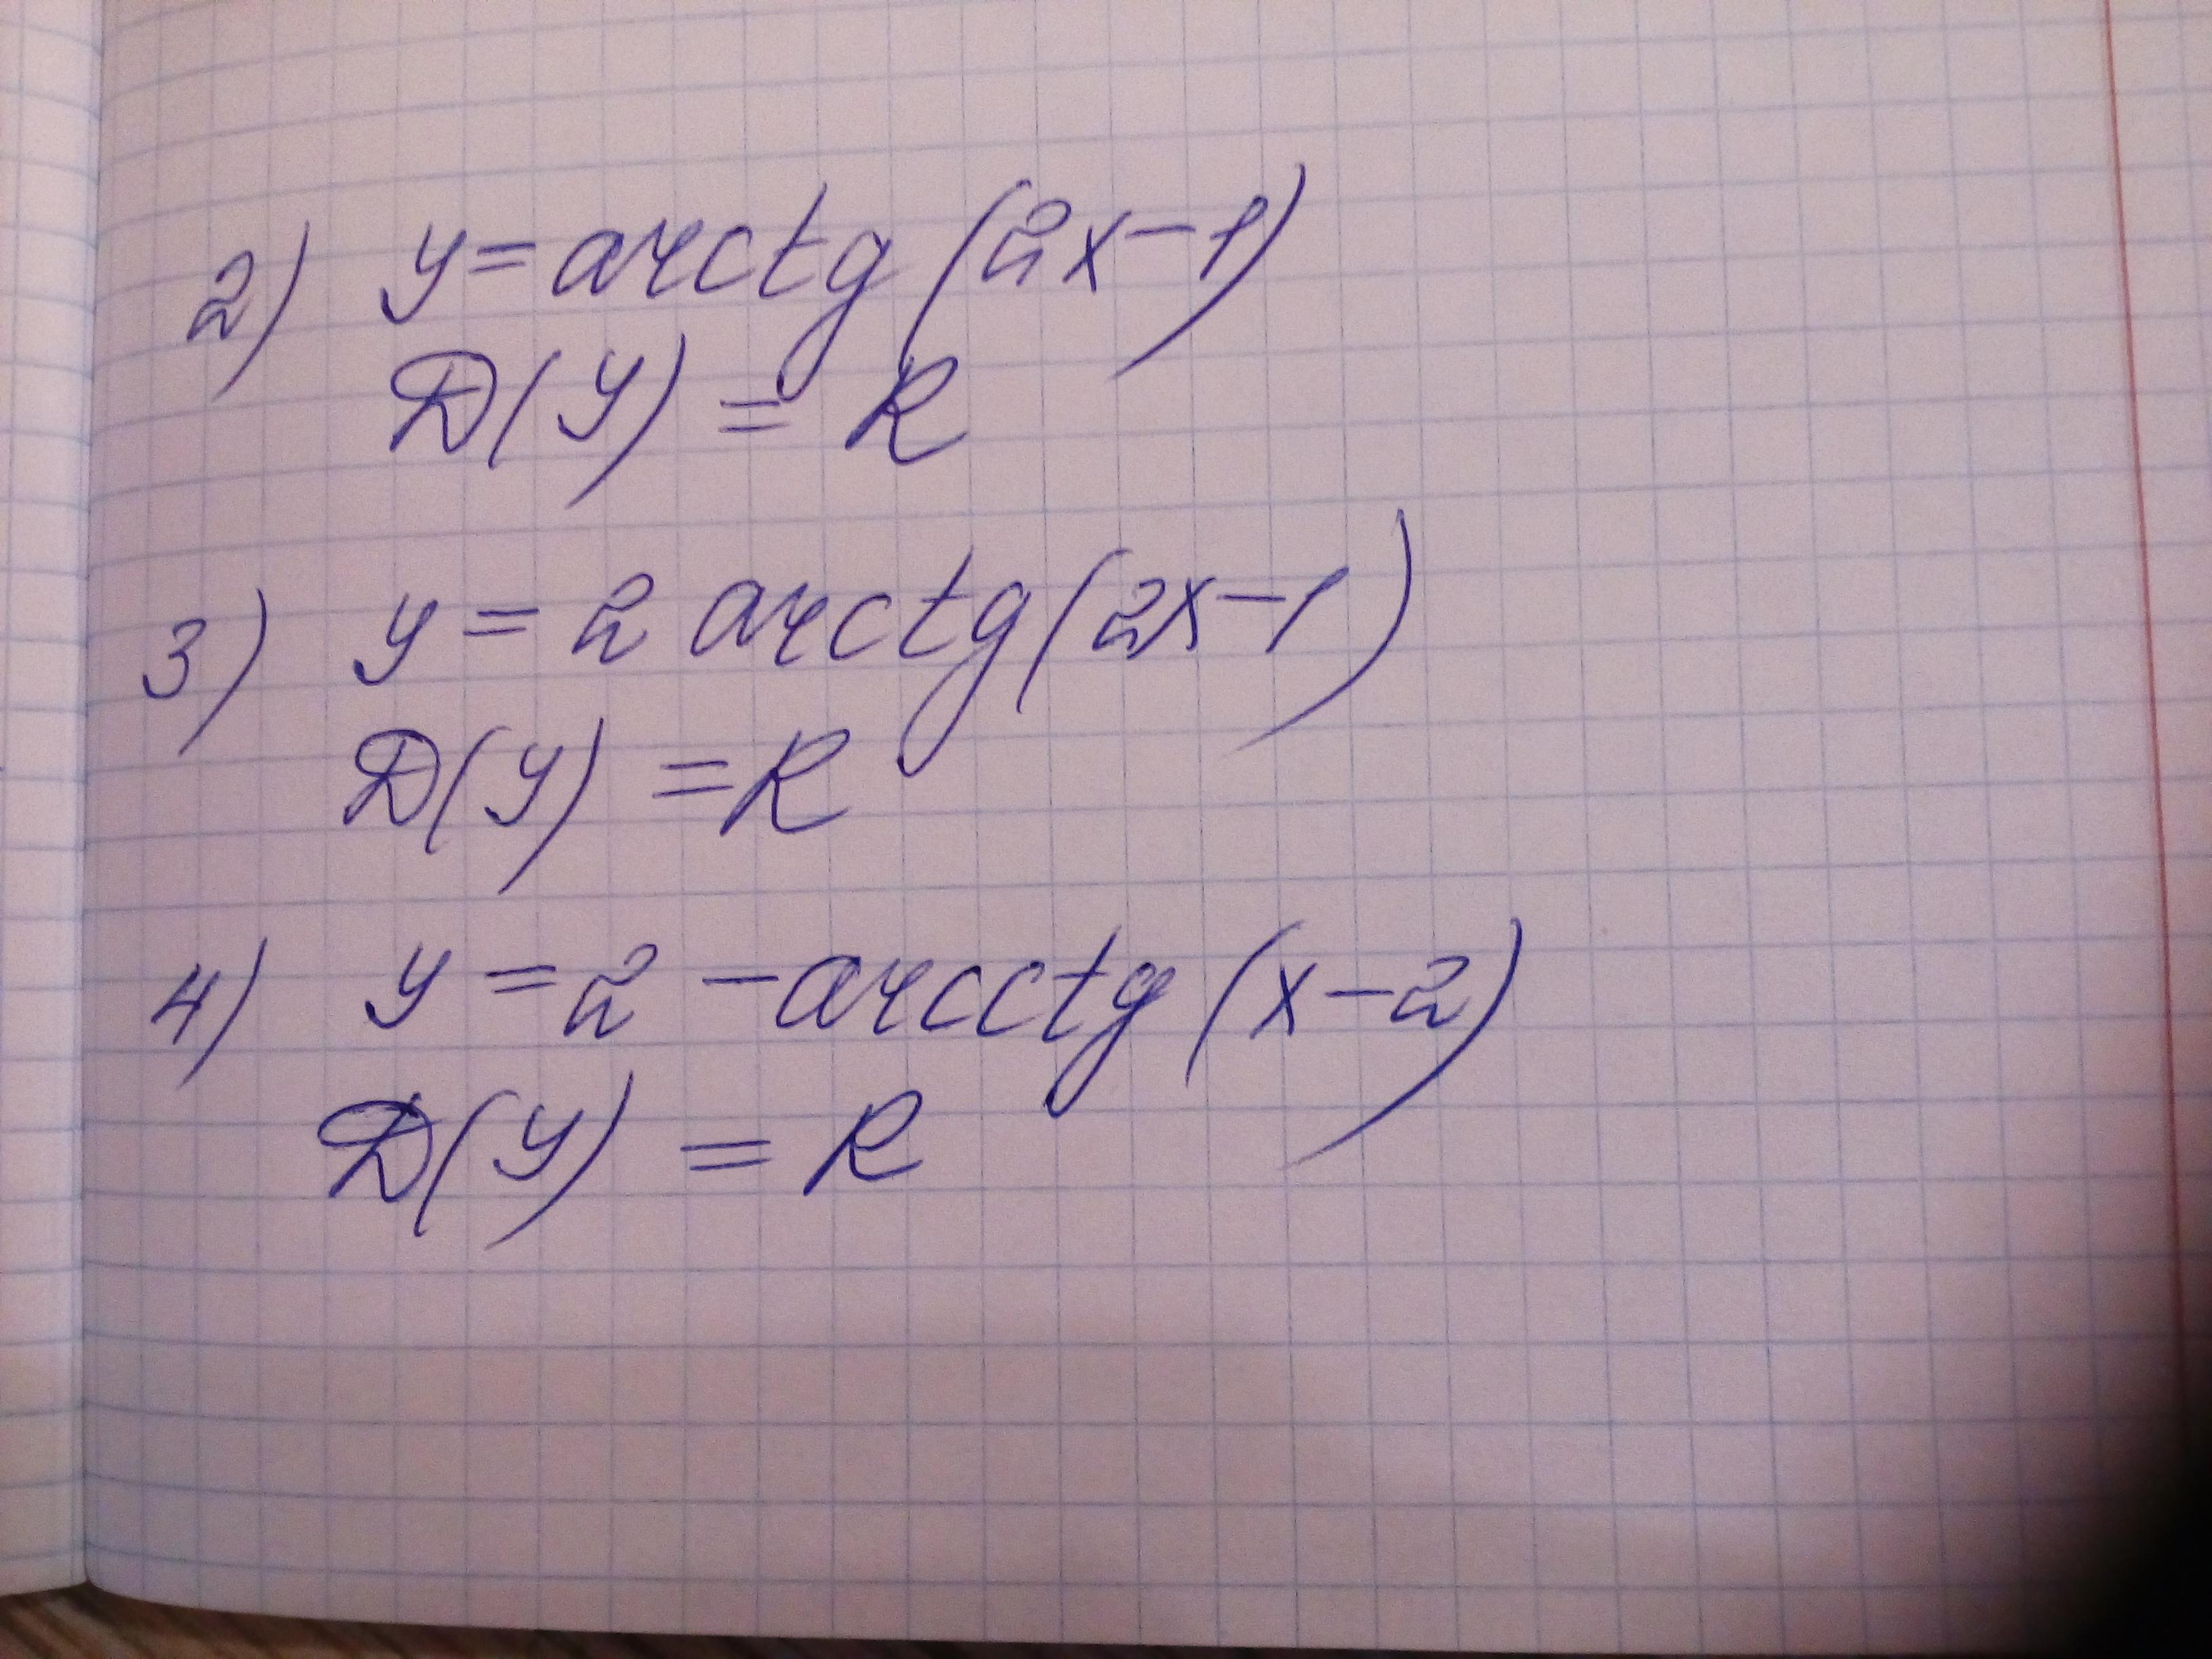 2) y = arctg (2x-1)
D(y) = R
3) y = 2 arctg (2x-1)
D(y) = R
4) y = 2 - arcctg (x-2)
D(y) = R